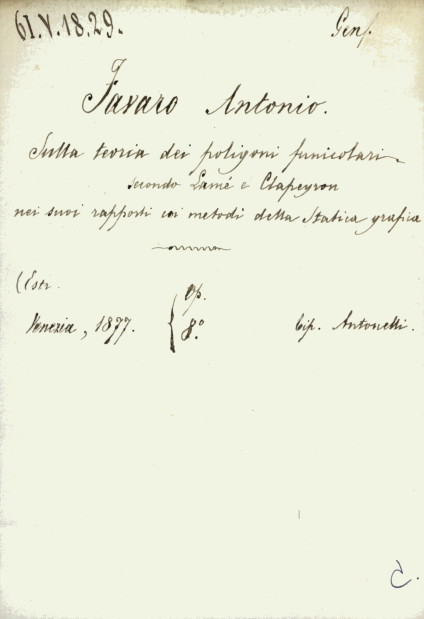 61.V.18.29. Genf.
Favaro Antonio.
Sulla teoria dei poligoni funicolari
secondo Lamé e Clapeyron
nei suoi rapporti coi metodi della Statica grafica
(Estr.
Venezia, 1877. { Op. 8.° Tip. Antonelli.
C.